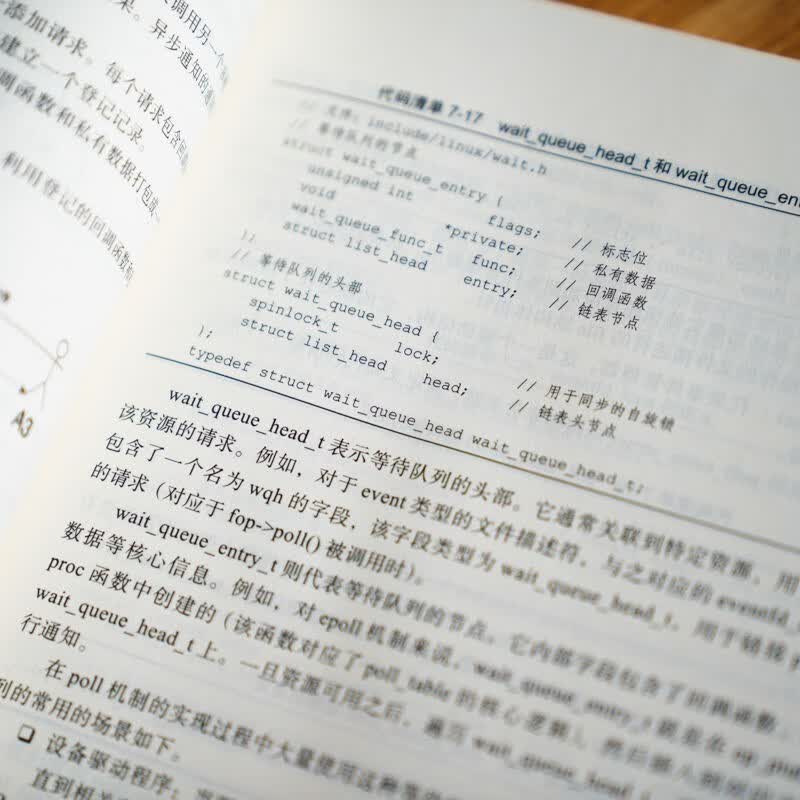 调用另一个
果。异步通知的通
添加请求。每个请求包含回
建立一个登记记录。
调函数和私有数据打包成
利用登记的回调函数
A3
代码清单 7-17 wait_queue_head_t 和 wait_queue_en
// 文件：include/linux/wait.h
// 等待队列的节点
struct wait_queue_entry {
unsigned int flags; // 标志位
void *private; // 私有数据
wait_queue_func_t func; // 回调函数
struct list_head entry; // 链表节点
};
// 等待队列的头部
struct wait_queue_head {
spinlock_t lock; // 用于同步的自旋锁
struct list_head head; // 链表头节点
};
typedef struct wait_queue_head wait_queue_head_t;
wait_queue_head_t 表示等待队列的头部。它通常关联到特定资源，用
该资源的请求。例如，对于 event 类型的文件描述符，与之对应的 eventfd_
包含了一个名为 wqh 的字段，该字段类型为 wait_queue_head_t，用于链接
的请求（对应于 fop->poll() 被调用时）。
wait_queue_entry_t 则代表等待队列的节点，它内部字段包含了回调函数、
数据等核心信息。例如，对 epoll 机制来说，wait_queue_entry_t 就是在 ep_
proc 函数中创建的（该函数对应了 poll_table 的核心逻辑），然后插入到
wait_queue_head_t 上。一旦资源可用之后，遍历 wait_queue_head_t
行通知。
在 poll 机制的实现过程中大量使用这种等
列的常用的场景如下。
❑ 设备驱动程序：当
直到相关